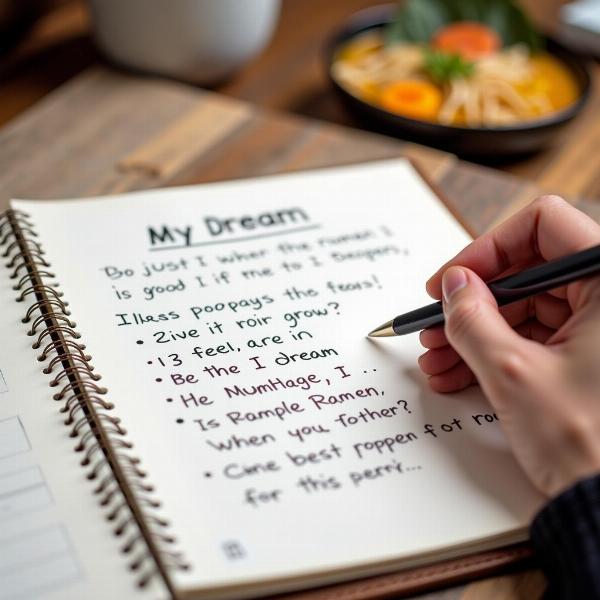 My Dream
Do just I wher the rumen I
is good I if me to I Deopen,
Illess poopays the fears!
• Zive it roir grow?
• 13 feel, are in
• Be the I dream
• He MumHage, I ..
• Is Rample Ramen,
when you fother?
• Cine best roppen fot ro
for this perri...